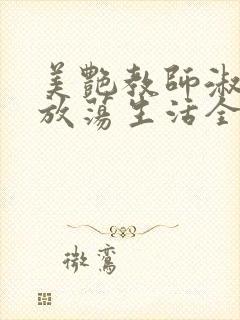 美艷教師淑
放蕩生活全
微鸞